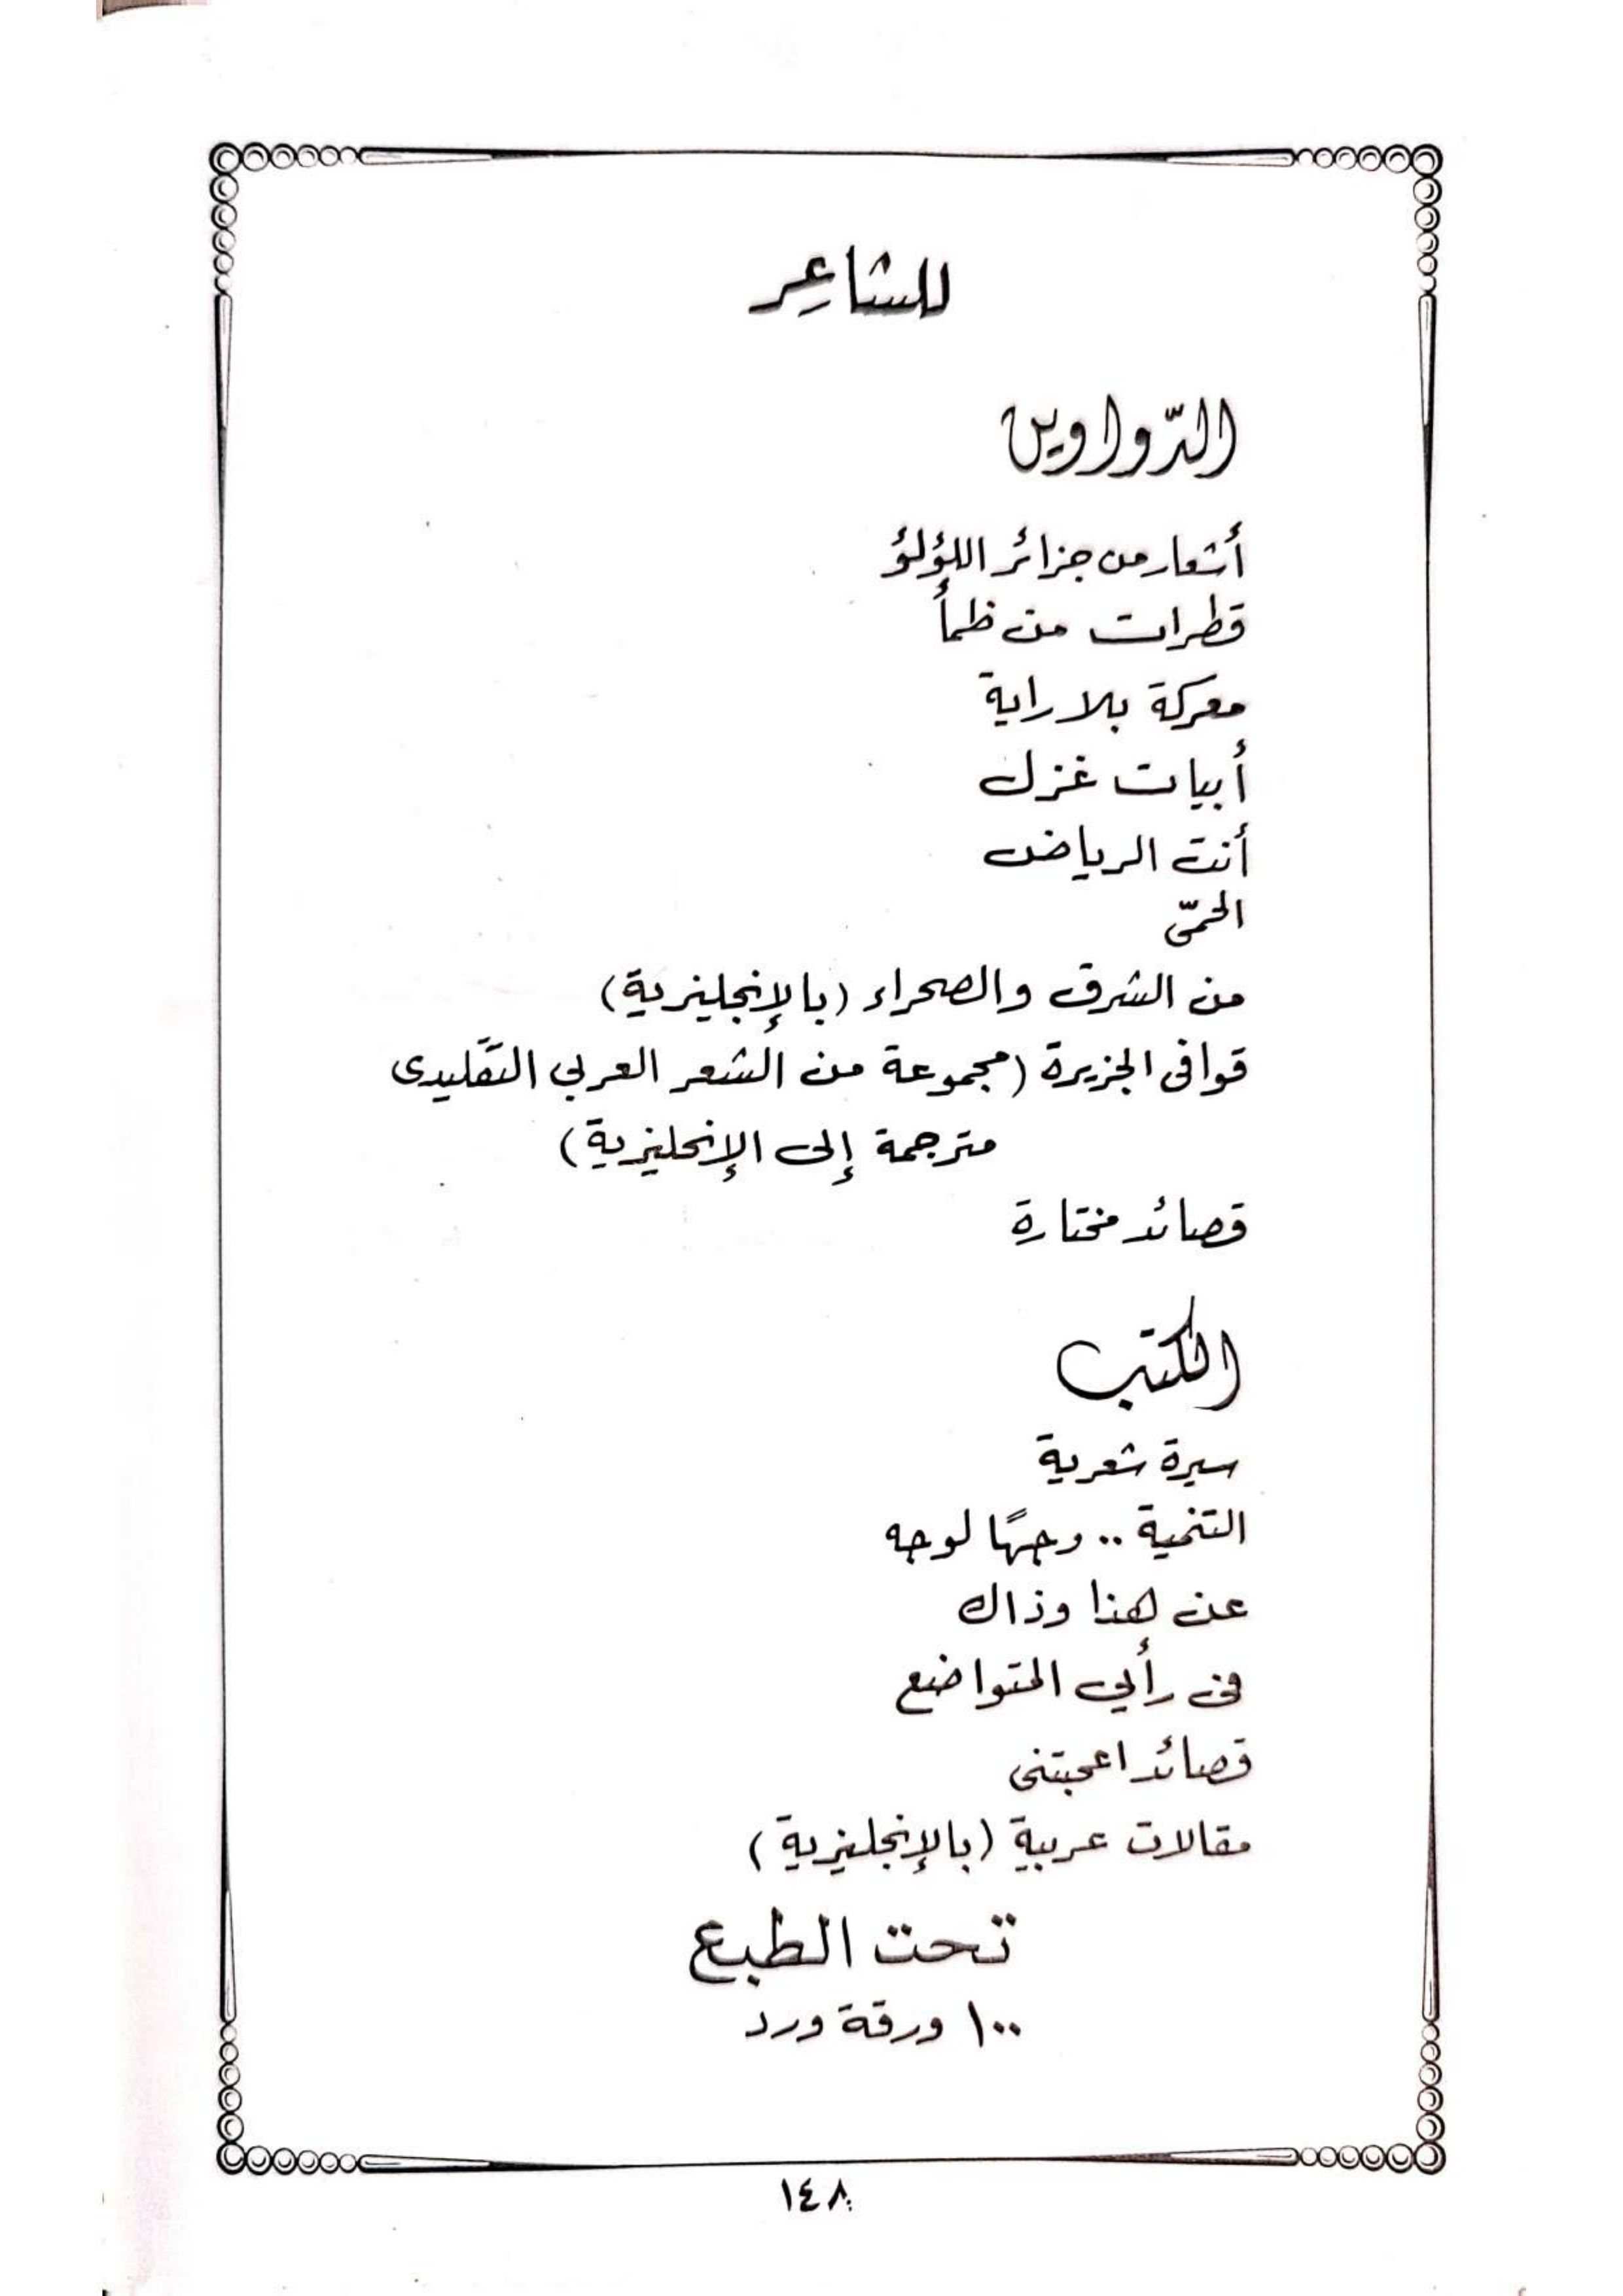 للشاعِر
الدّواوين
أشعار من جزائر اللؤلؤ
قطرات من ظمأ
معركة بلا راية
أبيات غزل
أنت الرياض
الحمّى
من الشرق والصحراء (بالإنجليزية)
قوافي الجزيرة (مجموعة من الشعر العربي التقليدى
مترجمة إلى الإنجليزية)
قصائد مختارة
الكتب
سيرة شعرية
التنمية .. وجهًا لوجه
عن هذا وذاك
في رأيي المتواضع
قصائد اعجبتني
مقالات عربية (بالإنجليزية)
تحت الطبع
١٠٠ ورقة ورد
١٤٨